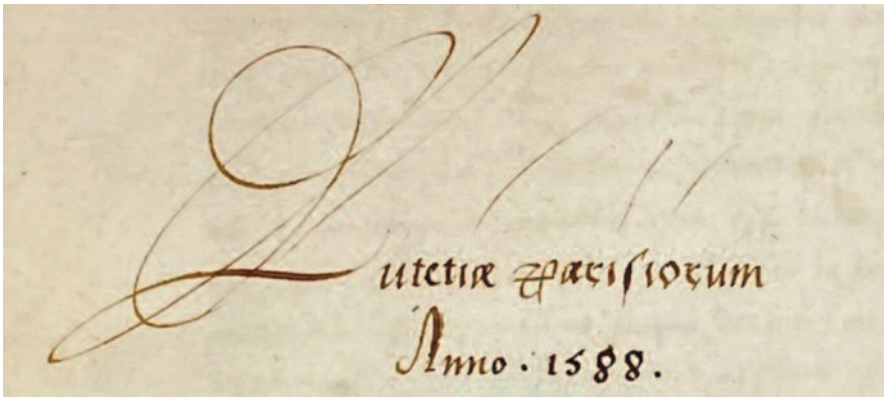 Lutetiæ Parisiorum
Anno. 1588.